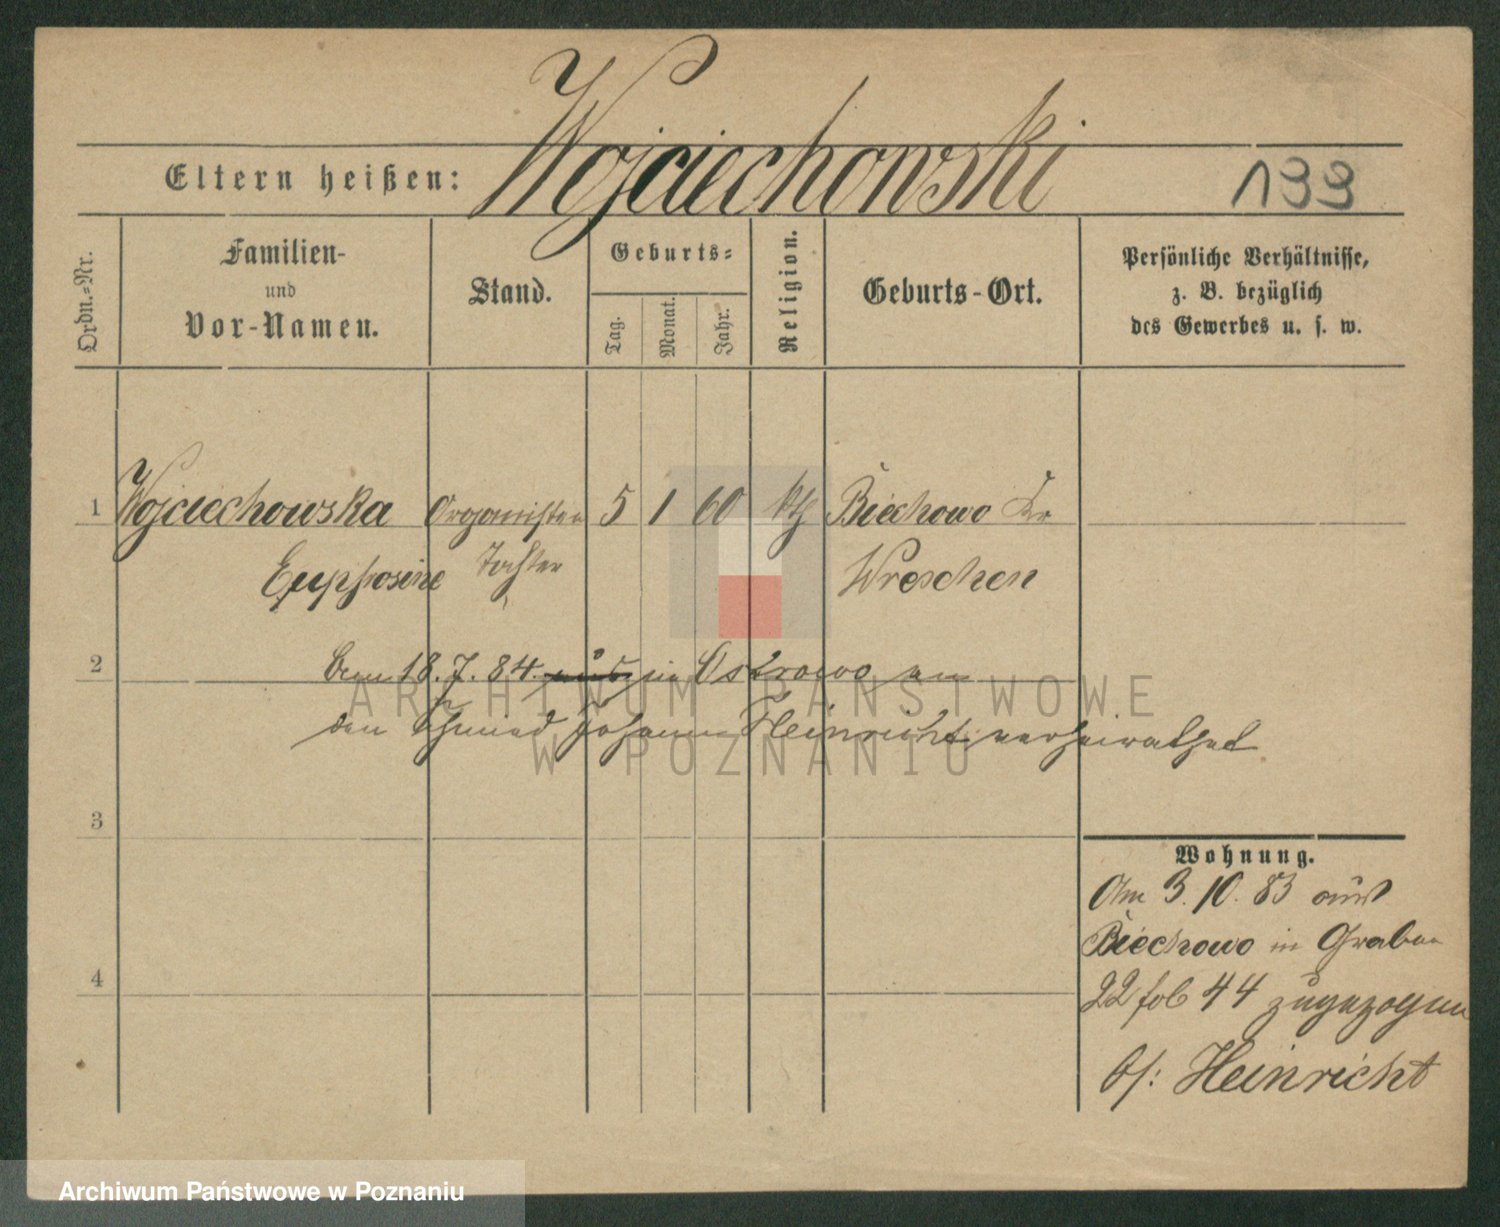 Wojciechowski
Eltern heißen:
133
Ordn.-Nr.
Familien-
und
Vor-Namen.
Stand.
Geburts-
Tag.
Monat.
Jahr.
Religion.
Geburts-Ort.
Persönliche Verhältnisse,
z. B. bezüglich
des Gewerbes u. s. w.
1 Wojciechowska Organisten 5 1 60 kth Biechowo Kr
Euphrosine Tochter Wreschen
2 18.7.84. in Ostrowo an
den Schmied Johann Heinricht verheirathet
3
Wohnung.
Am 3.10.83 aus
Biechowo in Graben
22 fol 44 zugezogen
4
Cf: Heinricht
ARCHIWUM PAŃSTWOWE
W POZNANIU
Archiwum Państwowe w Poznaniu